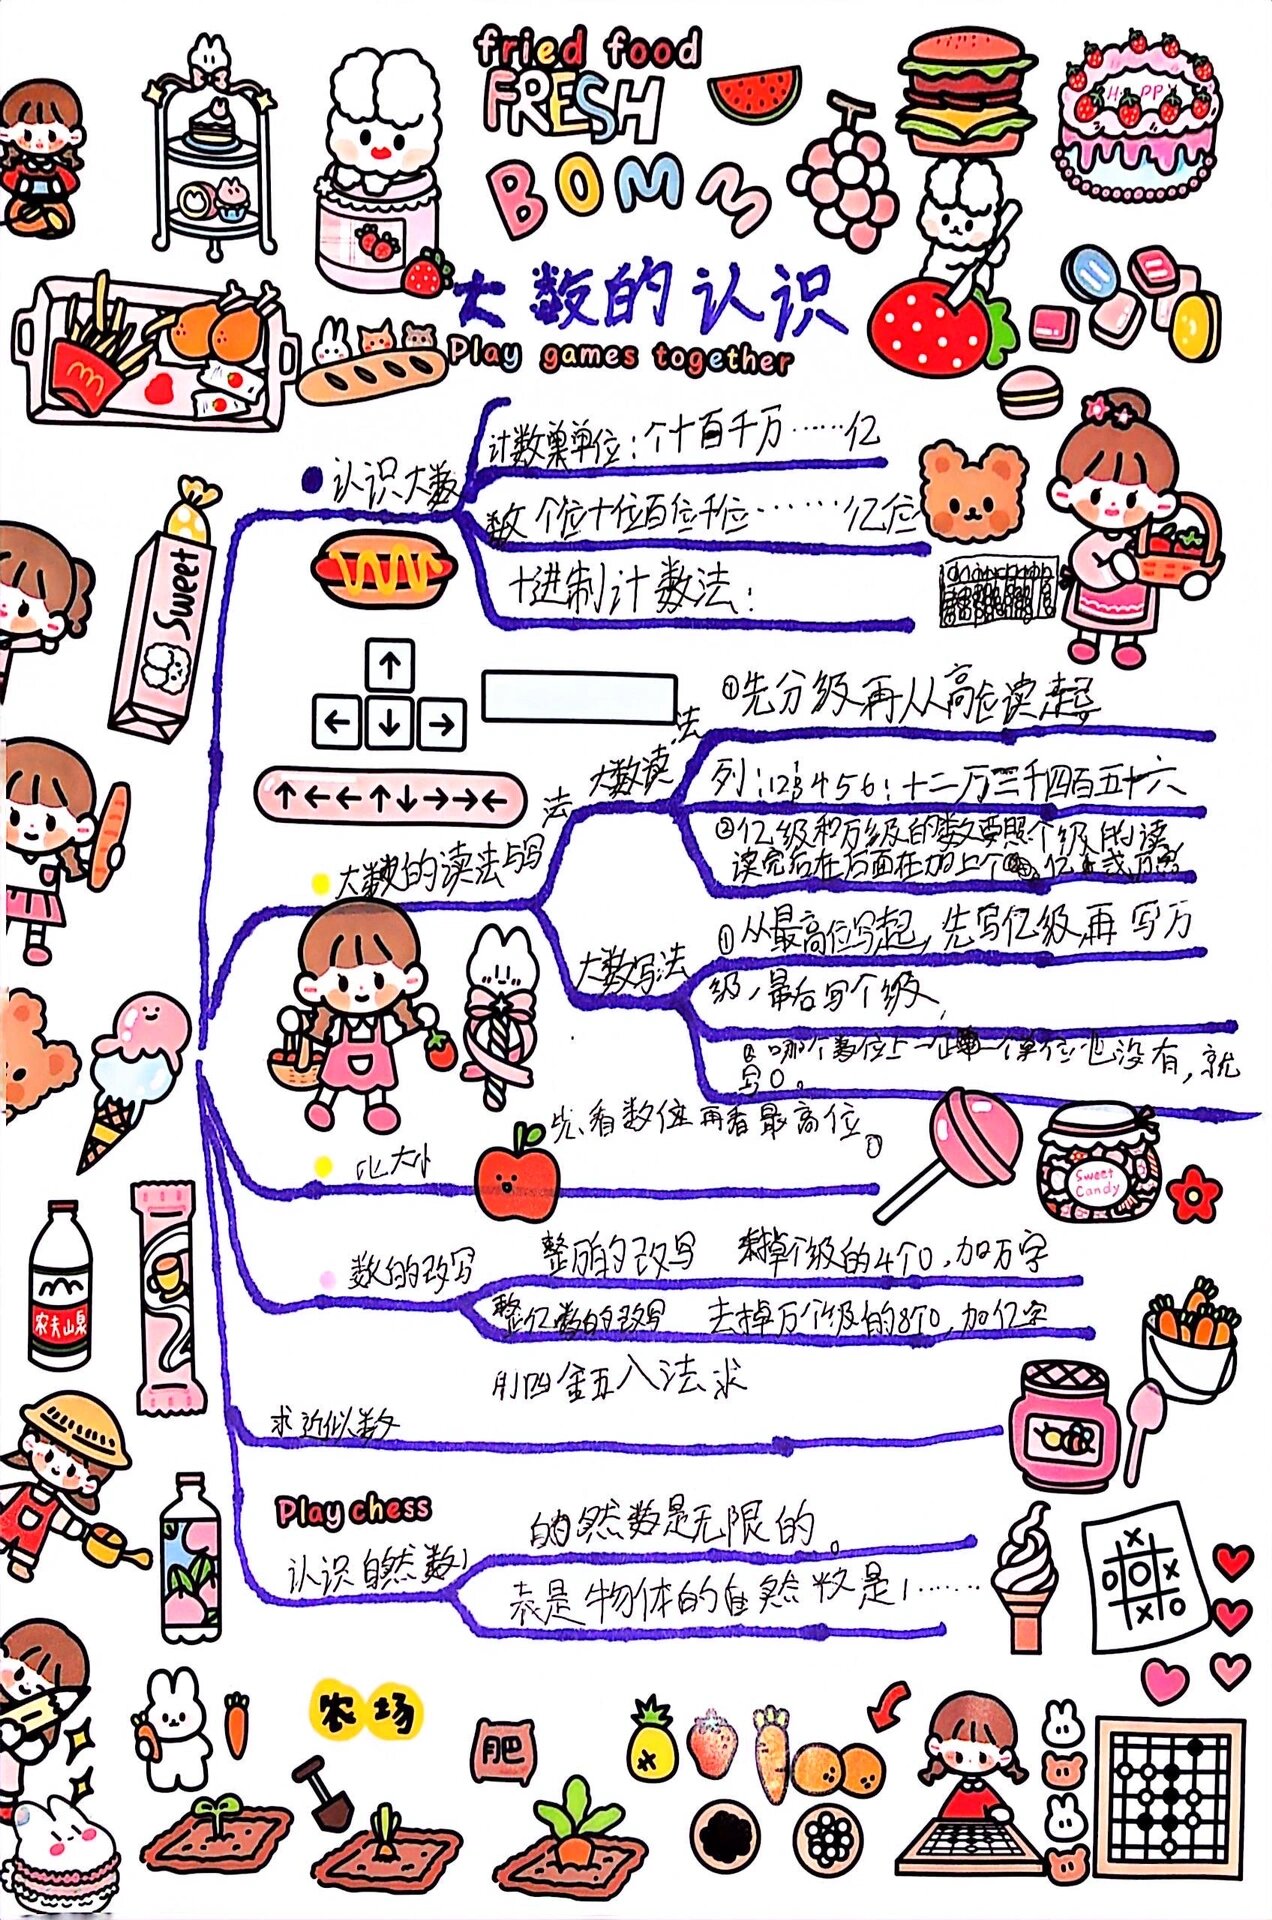 fried food
FRESH
BOMM
HAPPY
大数的认识
Play games together
认识大数
计数单位：个十百千万……亿
数 个位十位百位千位……亿位
十进制计数法：
Sweet
大数的读法与写法
大数读法
①先分级再从高位读起
列：123456：十二万三千四百五十六
②亿级和万级的数要照个级的读
读完后在后面在加上个 亿 或万
大数写法
①从最高位写起，先写亿级，再写万
级，最后写个级，
②哪个数位上一 一个单位也没有，就
写0。
比大小
先看数位再看最高位。
Sweet
Candy
数的改写
整万的改写 去掉个级的4个0，加万字
整亿数的改写 去掉万个级的8个0，加亿字
农夫山泉
求近似数
用四舍五入法求
Play chess
认识自然数
自然数是无限的。
表是物体的自然数是1……
农场
肥